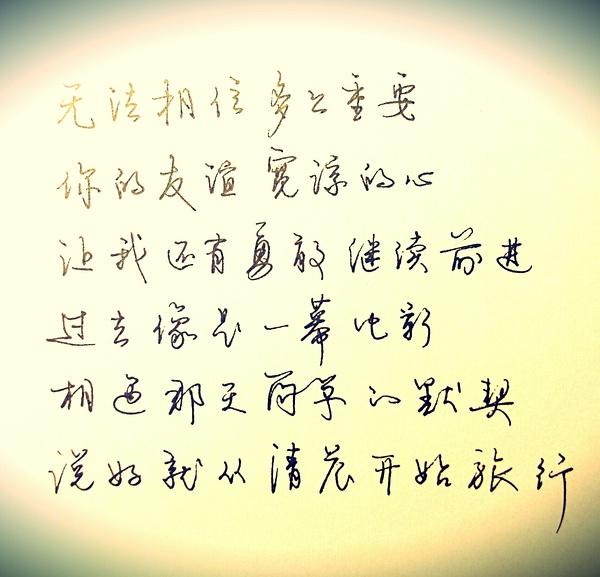 无法相信多么重要
你的友谊宽谅的心
让我还有勇敢继续前进
过去像是一幕电影
相遇那天雨季的默契
说好就从清晨开始旅行